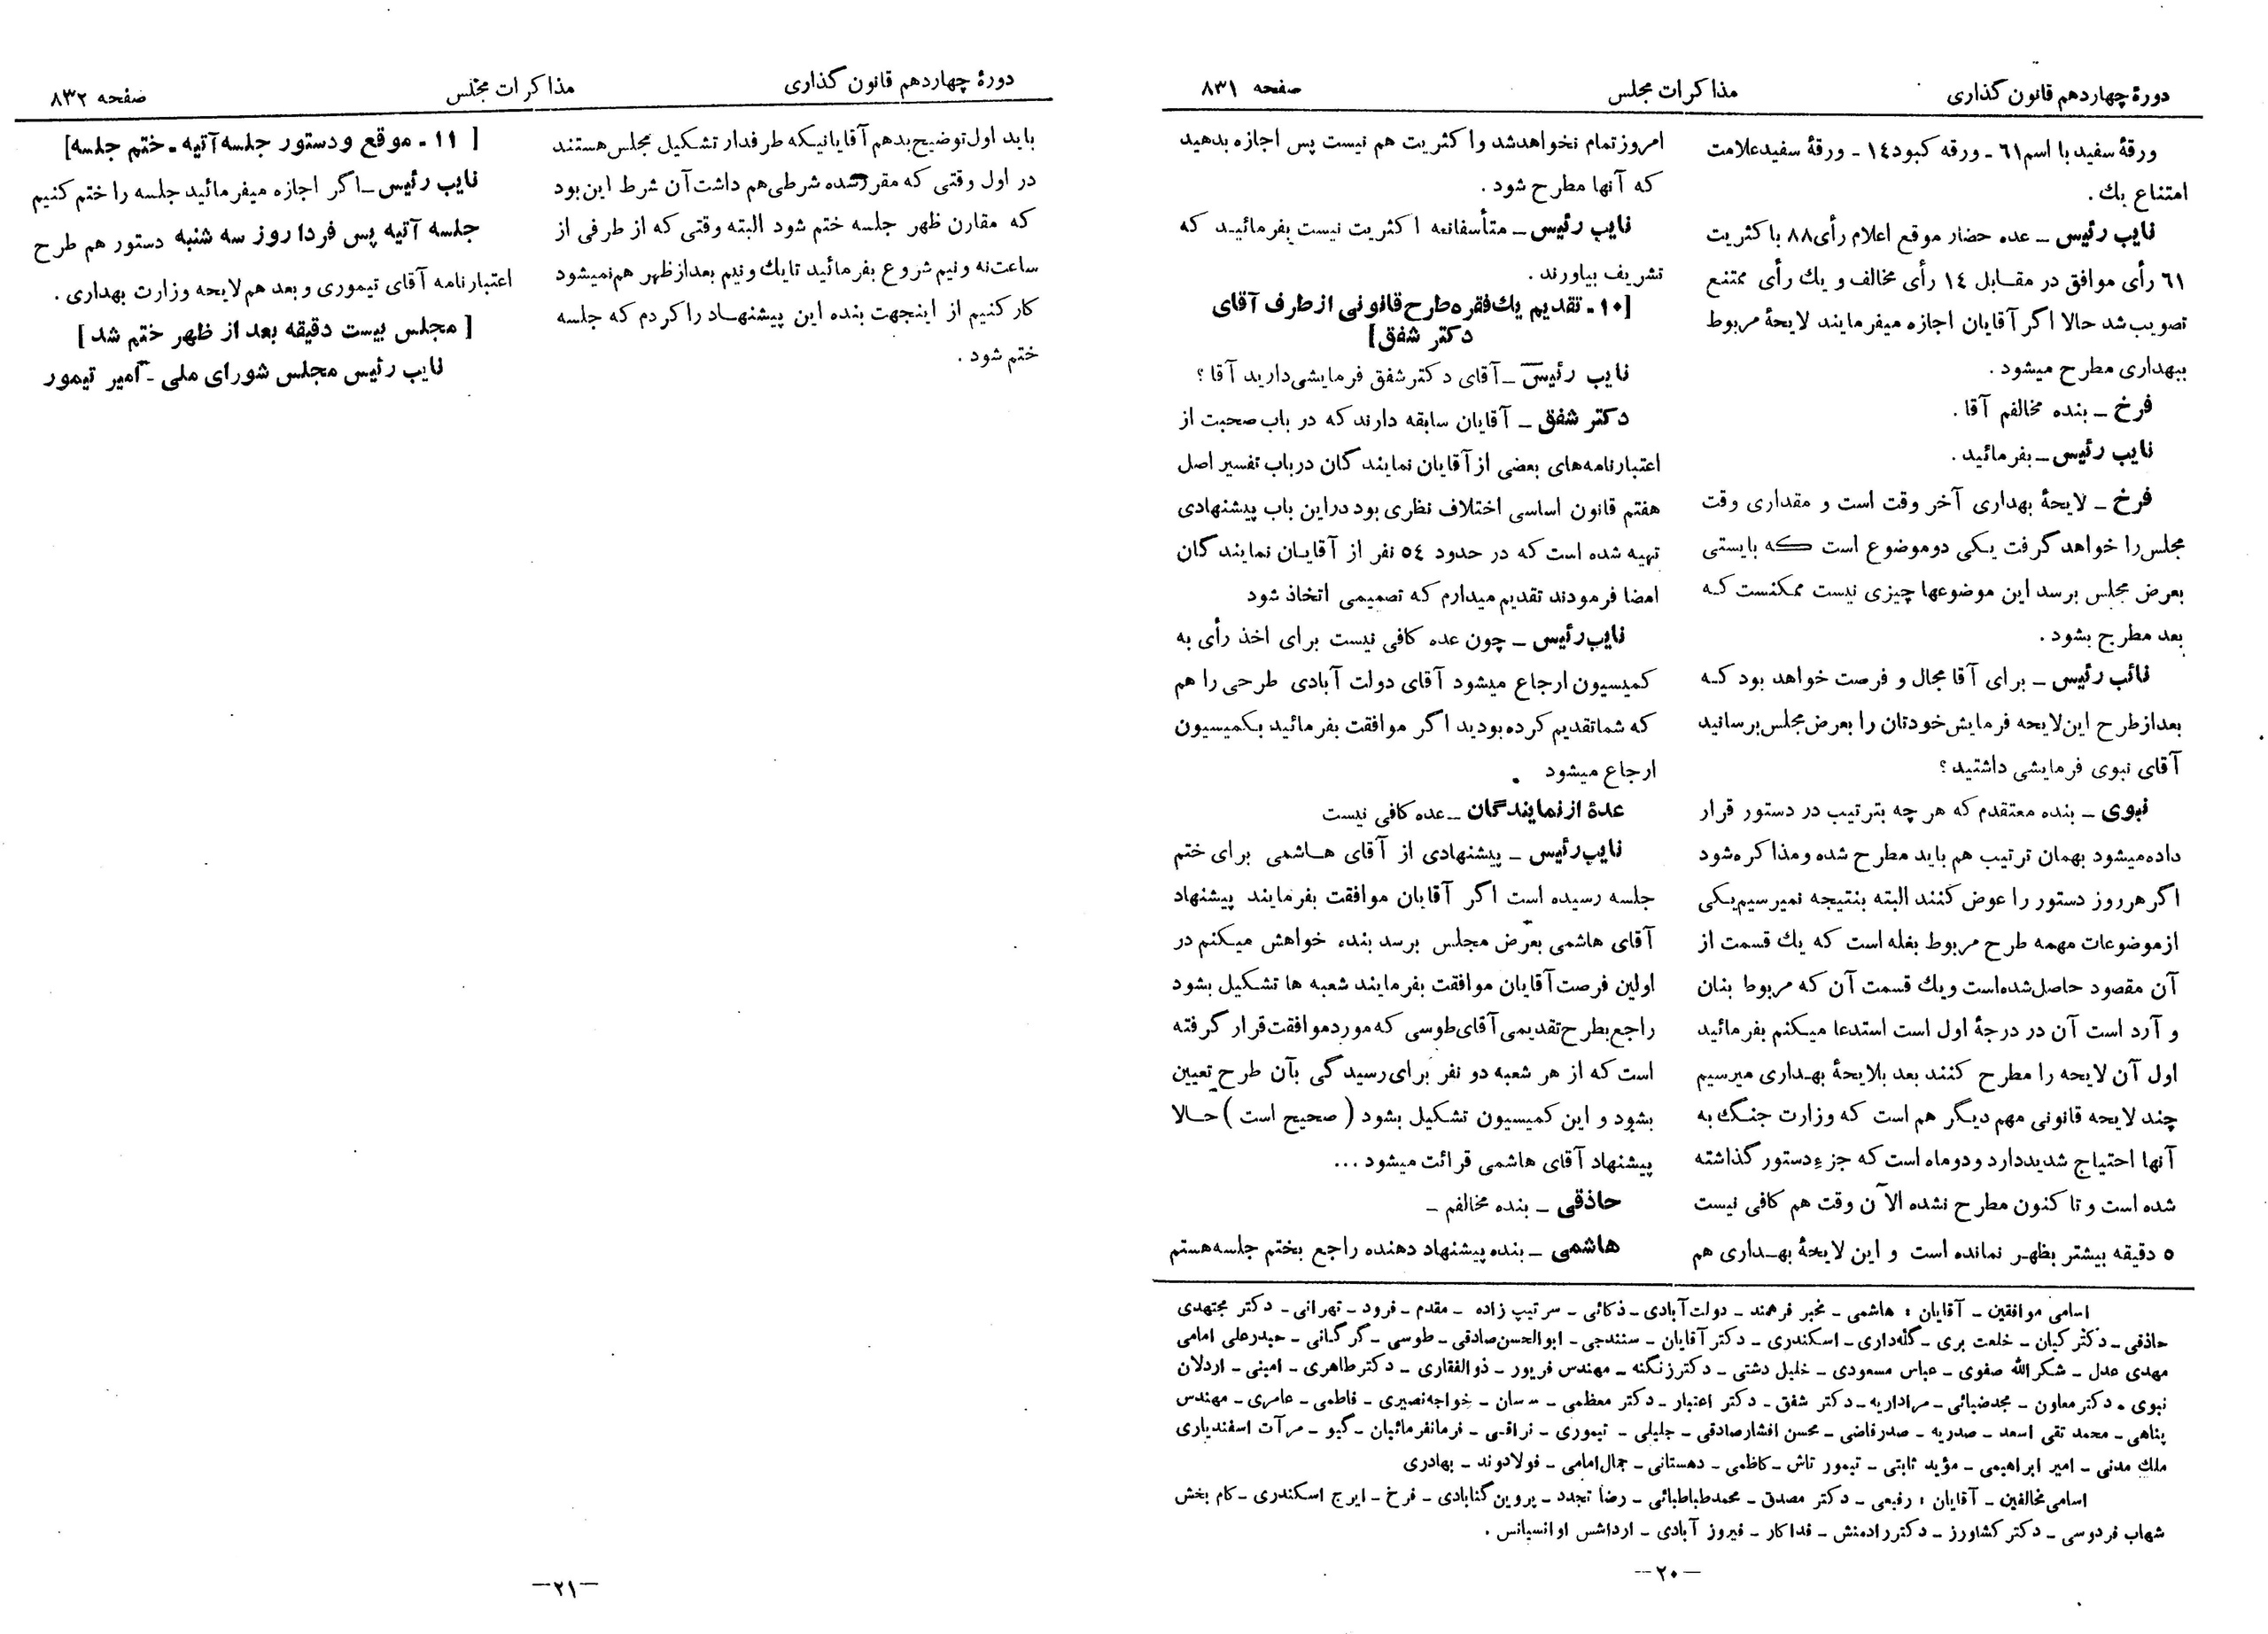 دورهٔ چهاردهم قانون گذاری
مذاکرات مجلس
صفحه ۸۳۱
ورقهٔ سفید با اسم ۶۱ ـ ورقه کبود ۱۴ ـ ورقهٔ سفید علامت
امتناع یك .
نایب رئیس ـ عده حضار موقع اعلام رأی ۸۸ باکثریت
۶۱ رأی موافق در مقابل ۱۴ رأی مخالف و یك رأی ممتنع
تصویب شد حالا اگر آقایان اجازه میفرمایند لایحهٔ مربوط
ببهداری مطرح میشود .
فرخ ـ بنده مخالفم آقا .
نایب رئیس ـ بفرمائید .
فرخ ـ لایحهٔ بهداری آخر وقت است و مقداری وقت
مجلس را خواهد گرفت یکی دو موضوع است که بایستی
بعرض مجلس برسد این موضوعها چیزی نیست ممکنست که
بعد مطرح بشود .
نائب رئیس ـ برای آقا مجال و فرصت خواهد بود که
بعد از طرح این لایحه فرمایش خودتان را بعرض مجلس برسانید
آقای نبوی فرمایشی داشتید ؟
نبوی ـ بنده معتقدم که هر چه بترتیب در دستور قرار
داده میشود بهمان ترتیب هم باید مطرح شده و مذاکره شود
اگر هر روز دستور را عوض کنند البته بنتیجه نمیرسیم یکی
از موضوعات مهمه طرح مربوط بغله است که یك قسمت از
آن مقصود حاصل شده است و یك قسمت آن که مربوط بنان
و آرد است آن در درجهٔ اول است استدعا میکنم بفرمائید
اول آن لایحه را مطرح کنند بعد بلایحهٔ بهداری میرسیم
چند لایحه قانونی مهم دیگر هم است که وزارت جنگ به
آنها احتیاج شدید دارد و دو ماه است که جزء دستور گذاشته
شده است و تا کنون مطرح نشده الآن وقت هم کافی نیست
۵ دقیقه بیشتر بظهر نمانده است و این لایحهٔ بهداری هم
امروز تمام نخواهد شد و اکثریت هم نیست پس اجازه بدهید
که آنها مطرح شود .
نایب رئیس ـ متأسفانه اکثریت نیست بفرمائید که
تشریف بیاورند .
[۱۰ ـ تقدیم یك فقره طرح قانونی از طرف آقای
دکتر شفق]
نایب رئیس ـ آقای دکتر شفق فرمایشی دارید آقا ؟
دکتر شفق ـ آقایان سابقه دارند که در باب صحبت از
اعتبارنامه‌های بعضی از آقایان نمایندگان در باب تفسیر اصل
هفتم قانون اساسی اختلاف نظری بود در این باب پیشنهادی
تهیه شده است که در حدود ۵۴ نفر از آقایان نمایندگان
امضا فرمودند تقدیم میدارم که تصمیمی اتخاذ شود
نایب رئیس ـ چون عده کافی نیست برای اخذ رأی به
کمیسیون ارجاع میشود آقای دولت آبادی طرحی را هم
که شما تقدیم کرده بودید اگر موافقت بفرمائید بکمیسیون
ارجاع میشود .
عدهٔ از نمایندگان ـ عده کافی نیست
نایب رئیس ـ پیشنهادی از آقای هاشمی برای ختم
جلسه رسیده است اگر آقایان موافقت بفرمایند پیشنهاد
آقای هاشمی بعرض مجلس برسد بنده خواهش میکنم در
اولین فرصت آقایان موافقت بفرمایند شعبه ها تشکیل بشود
راجع بطرح تقدیمی آقای طوسی که مورد موافقت قرار گرفته
است که از هر شعبه دو نفر برای رسیدگی بآن طرح تعیین
بشود و این کمیسیون تشکیل بشود ( صحیح است ) حالا
پیشنهاد آقای هاشمی قرائت میشود ...
حاذقی ـ بنده مخالفم ـ
هاشمی ـ بنده پیشنهاد دهنده راجع بختم جلسه هستم
اسامی موافقین ـ آقایان : هاشمی ـ مخبر فرهمند ـ دولت آبادی ـ ذکائی ـ سرتیپ زاده ـ مقدم ـ فرود ـ تهرانی ـ دکتر مجتهدی
حاذقی ـ دکتر کیان ـ خلعت بری ـ گله‌داری ـ اسکندری ـ دکتر آقایان ـ سنندجی ـ ابوالحسن صادقی ـ طوسی ـ گرگانی ـ حیدرعلی امامی
مهدی عدل ـ شکرالله صفوی ـ عباس مسعودی ـ خلیل دشتی ـ دکتر زنگنه ـ مهندس فریور ـ ذوالفقاری ـ دکتر طاهری ـ امینی ـ اردلان
نبوی ـ دکتر معاون ـ مجدضیائی ـ مراداریه ـ دکتر شفق ـ دکتر اعتبار ـ دکتر معظمی ـ ساسان ـ خواجه نصیری ـ فاطمی ـ عامری ـ مهندس
پناهی ـ محمد تقی اسعد ـ صدریه ـ صدر قاضی ـ محسن افشار صادقی ـ جلیلی ـ تیموری ـ نراقی ـ فرمانفرمائیان ـ گیو ـ مرآت اسفندیاری
ملك مدنی ـ امیر ابراهیمی ـ مؤید ثابتی ـ تیمور تاش ـ کاظمی ـ دهستانی ـ جمال امامی ـ فولادوند ـ بهادری
اسامی مخالفین ـ آقایان : رفیعی ـ دکتر مصدق ـ محمد طباطبائی ـ رضا تجدد ـ پروین گنابادی ـ فرخ ـ ایرج اسکندری ـ کام بخش
شهاب فردوسی ـ دکتر کشاورز ـ دکتر رادمنش ـ فداکار ـ فیروز آبادی ـ ارداشس اوانسیانس .
—۲۰—
دورهٔ چهاردهم قانون گذاری
مذاکرات مجلس
صفحه ۸۳۲
باید اول توضیح بدهم آقایانیکه طرفدار تشکیل مجلس هستند
در اول وقتی که مقرر شده شرطی هم داشت آن شرط این بود
که مقارن ظهر جلسه ختم شود البته وقتی که از طرفی از
ساعت نه و نیم شروع بفرمائید تا یك و نیم بعد از ظهر هم نمیشود
کار کنیم از اینجهت بنده این پیشنهاد را کردم که جلسه
ختم شود .
[ ۱۱ ـ موقع و دستور جلسه آتیه ـ ختم جلسه]
نایب رئیس ـ اگر اجازه میفرمائید جلسه را ختم کنیم
جلسه آتیه پس فردا روز سه شنبه دستور هم طرح
اعتبارنامه آقای تیموری و بعد هم لایحه وزارت بهداری .
[ مجلس بیست دقیقه بعد از ظهر ختم شد ]
نایب رئیس مجلس شورای ملی ـ امیر تیمور
—۲۱—